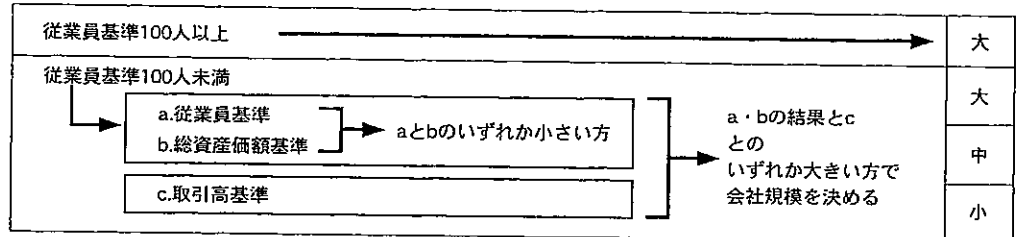 従業員基準100人以上
大
従業員基準100人未満
a.従業員基準
b.総資産価額基準
aとbのいずれか小さい方
c.取引高基準
a・bの結果とc
との
いずれか大きい方で
会社規模を決める
大
中
小